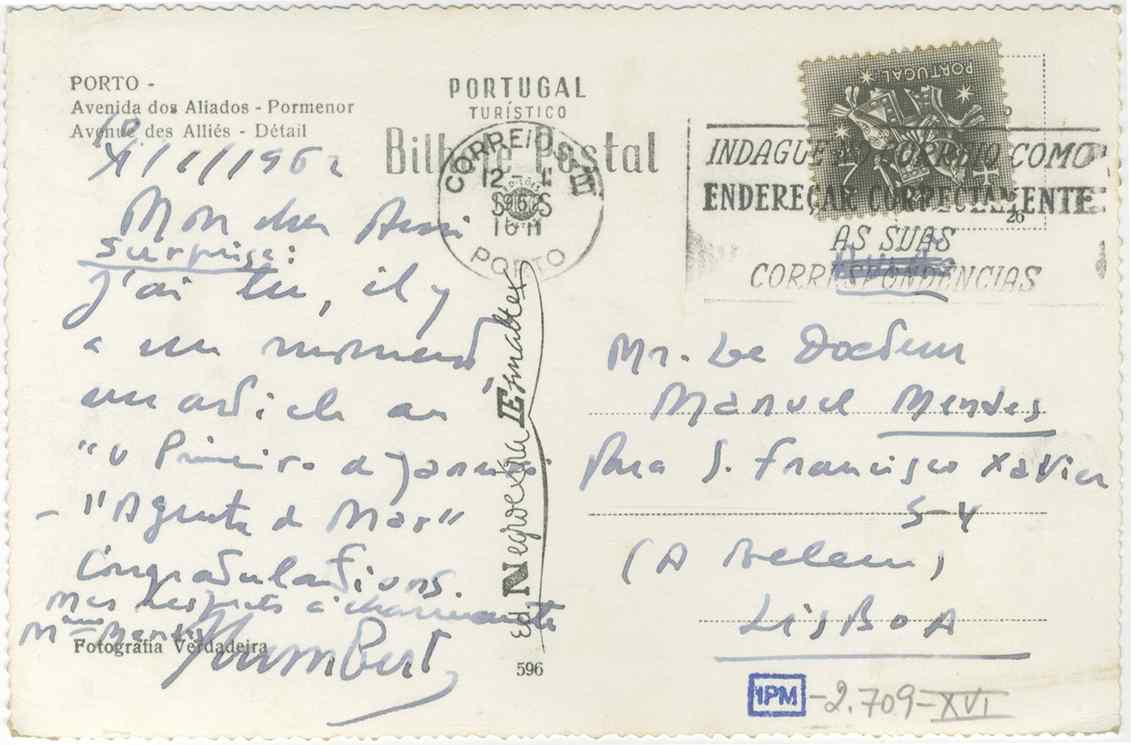 PORTO -
Avenida dos Aliados - Pormenor
Avenue des Alliés - Détail
PORTUGAL
TURÍSTICO
Bilhete Postal
CORREIOS
PORTO
PORTUGAL
INDAGUE NO CORREIO COMO
ENDEREÇAR CORRECTAMENTE
AS SUAS
CORRESPONDÊNCIAS
Mon cher Ami
Surprise:
J'ai lu, il y
a un moment
un article au
"O Primeiro de Janeiro"
- "Agenda de Mar"
Congratulations.
Mes respects à charmante
Mme Mendes
Humbert
Fotografia Verdadeira
Ed. Negroestra
596
Mr. Le Docteur
Manuel Mendes
Rua S. Francisco Xavier
5-4
(A Belem)
LISBOA
IPM -2.709-XVI